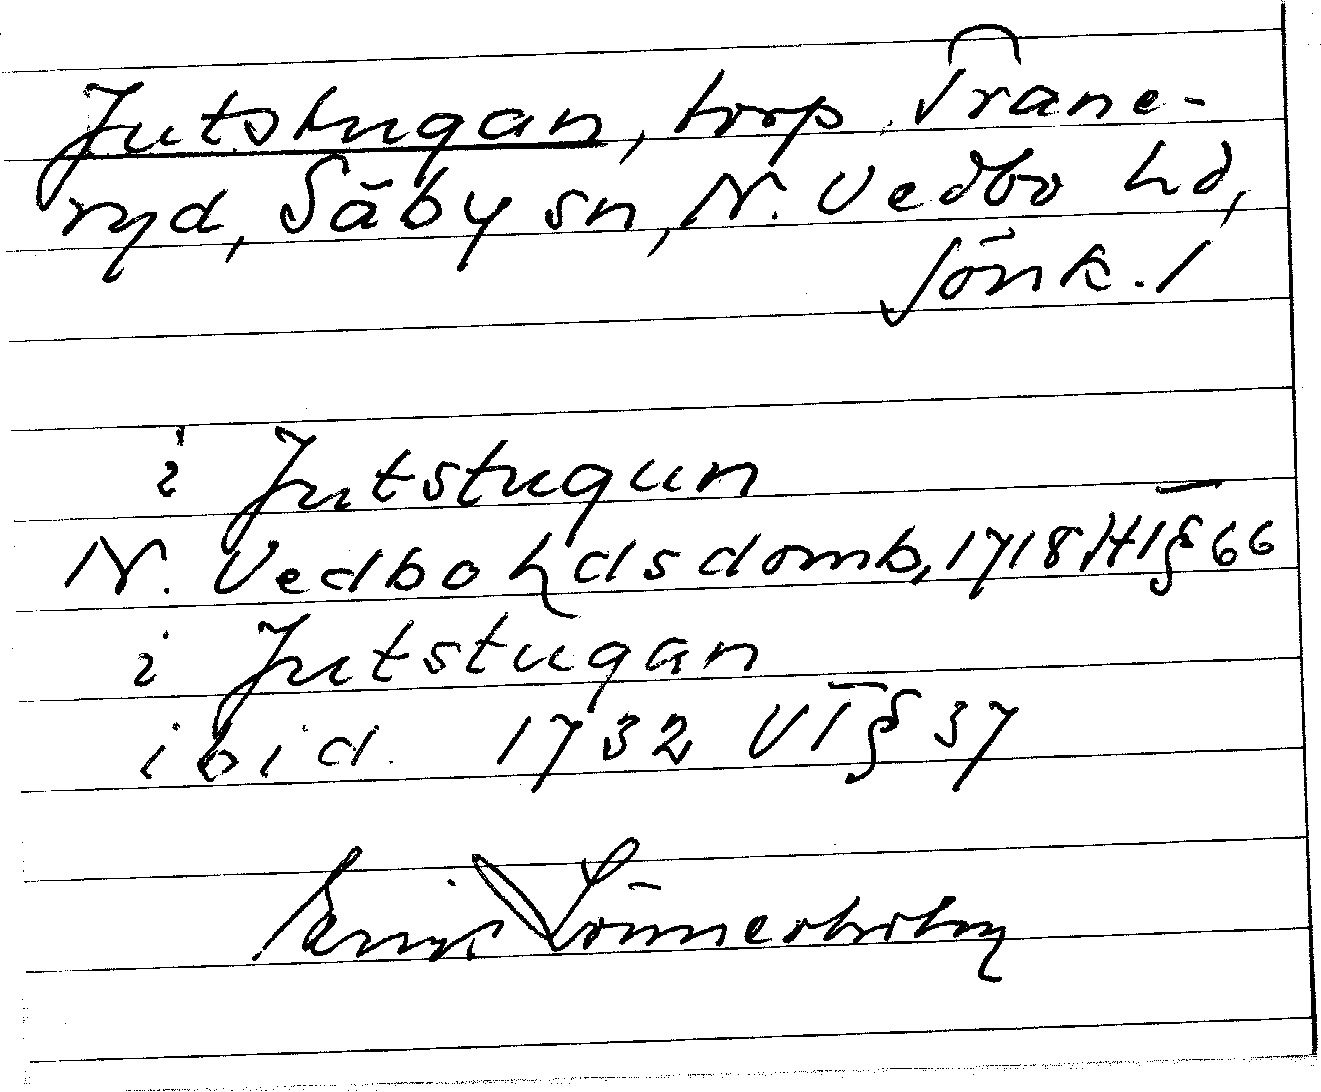 Jutstugan, torp Trane-
ryd, Säby sn, N. Vedbo hd,
Jönk. l
i Jutstugun
N. Vedbo hdsdomb, 1718 HI § 66
i Jutstugan
ibid. 1732 VI § 37